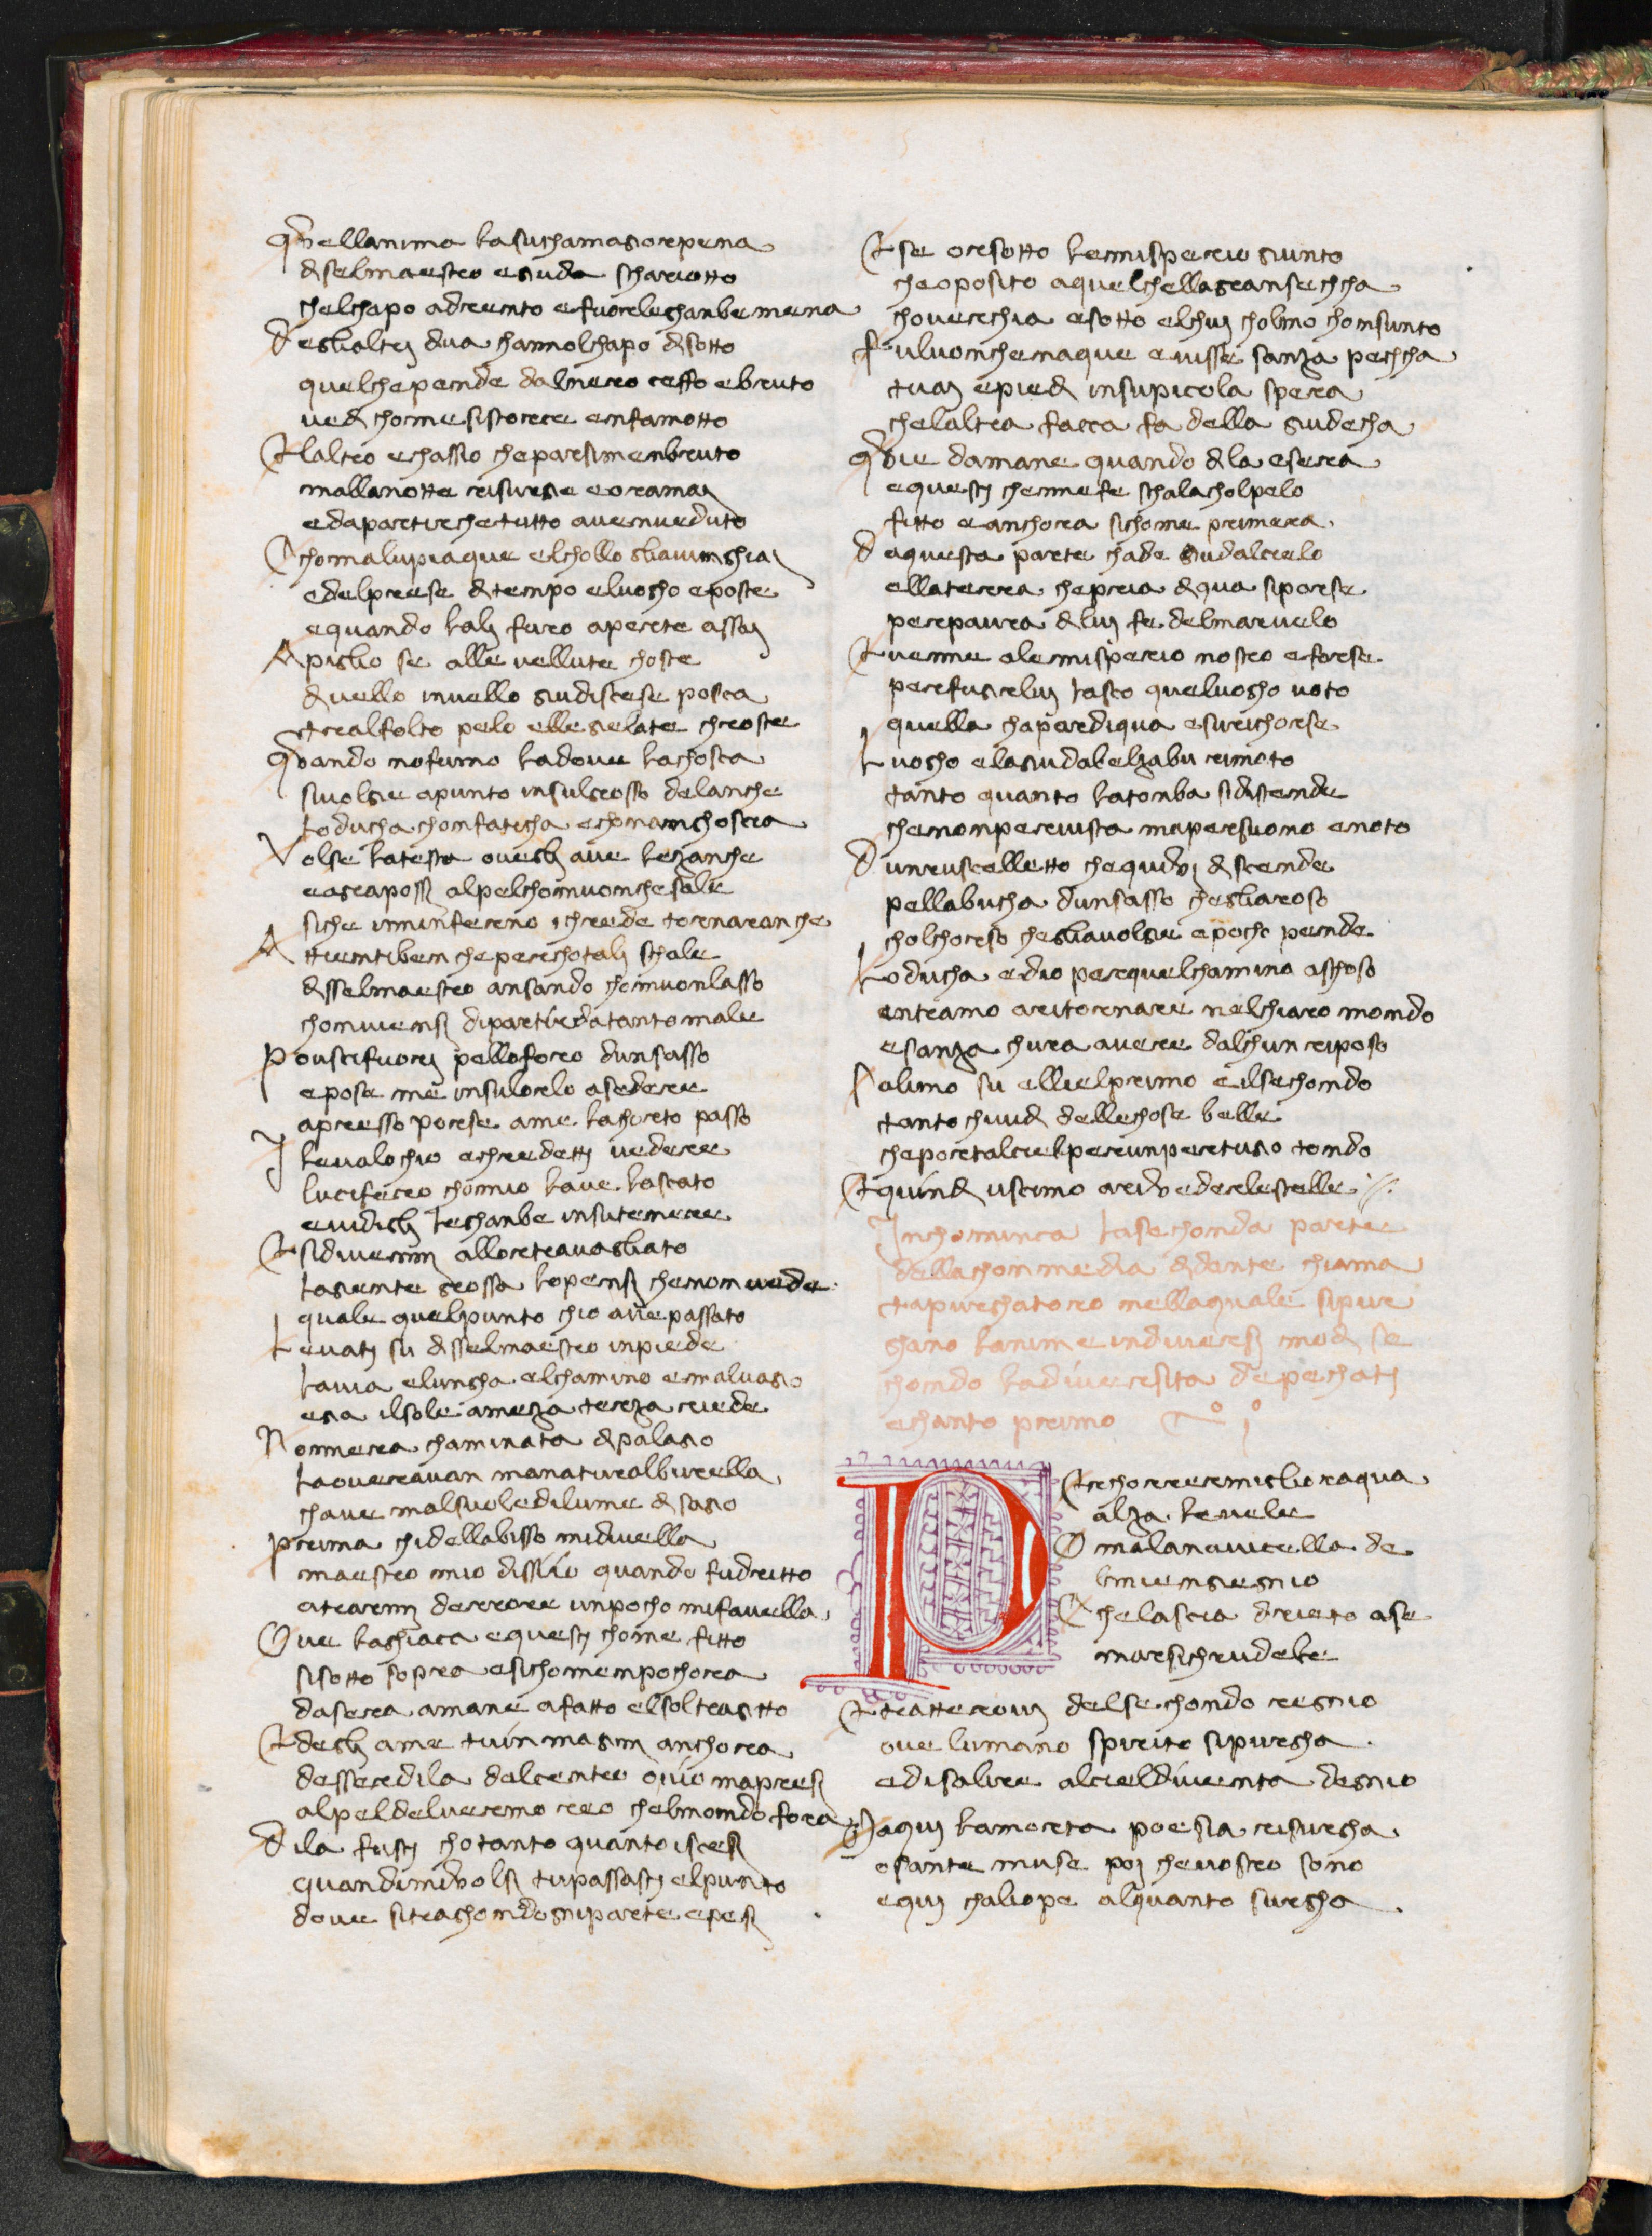 Quellanima lasuchamagorpena
diselmaestro egiuda schariotto
chelchapo adrento efuorleghanbe mena
Deglialtrj dua channolchapo disotto
quelchepende dalnero ceffo ebruto
uedi chome sistorce enfamotto
Elaltro echassio cheparsimenbruto
mallanotte risurge eoramaj
edapartir chetutto avenveduto
Chomaluipiaque elchollo gliavinghiaj
edelprese ditempo eluogho eposte
equando lalj furo aperte assaj
Apiglio se alle vellute choste
divello invello giudiscese poscia
tralfolto pelo elle gelate chroste
Quando nofumo ladove lachoscia
sivolgie apunto insulgrosso delanche
loducha chonfaticha echonanghoscia
Volse latesta ovegli ave lezanche
eagrapossi alpelchomuomchesale
siche inninferno i chrede tornaranche
Attientiben cheperchotalj schale
disselmaestro ansando chomuonlasso
chonviensi dipartirdatantomale
Pouscifuorj pelloforo dunsasso
epose me insulorlo asedere
apresso porse ame lachorto passo
I levalochio echredettj vedere
lucifero chomio lave lasciato
evidigli leghanbe insutenere
Esidivennj allortravagliato
lagiente grossa lopensi chenonvede
quale quelpunto chio ave passato
Levatj su disselmaestro inpiede
lavia elungha elchamino emalvagio
ega ilsole ameza terza riede
Nonnera chaminata dipalagio
laoveravan manaturalburella
chave malsuoledilume disagio
Prima chidellabisso midivella
maestro mio dissio quando fudritto
atrarmj derrore unpocho mifavella
Ove laghiacca equestj chome fitto
sisotto sopra esichomenpochora
dasera amane afatto elsoltragitto
Edegli ame tuinmaginj anchora
desserdila dalcentro ovio mapresi
alpeldelvermo reo chelmondo fora
Dila fustj chotanto quantoiscesi
quandimivolsi tupassastj elpunto
dove sitraghondognparte epesi
Ese orsotto lemisperio giunto
cheoposito aquelchellagransechcha
choverchia esotto elchuj cholmo chonsunto
Fuluomchenaque evisse sanza pechcha
tuaj epiedi insupicola spera
chelaltra facca fa della giudecha
Quie damane quando dila esera
equestj chenne fe schalacholpelo
fitto eanchora sichome primera
Daquesta parte chade giudalcielo
ellaterra chepria diqua siporse
perpaura diluj fe delmarvelo
Evenne alemisperio nostro eforse
perfugirluj lasco queluogho voto
quella chaperdiqua esurichorse
Luogho elagiudabelzabu rimoto
tanto quanto latonba sidistende
chenonpervista mapersuono enoto
Dunruscelletto chequivj discende
pellabucha dunsasso chegliaroso
cholchorso chegliavolgie epocho pende
Loducha edio perquelchamino aschoso
entramo aritornare nelchiaro mondo
esanza chura avere dalchunriposo
Salimo su ellielprimo eilsechondo
tanto chividi dellechose belle
cheportalcielperunpertugio tondo
Equindi uscimo arivederlestelle
Inchominca lasechonda parte
dellachommedia didante chiama
tapurghatoro nellaquale sipur
ghano lanime indiversi modi se
chondo ladiversita depechatj
echanto primo co io
Perchorrermiglioraqua
alza levele
Omalanavicella de
lmiengiegnio
Chelascia drieto ase
marsichrudele
Etratterovij delsechondo regnio
ove lumano spirito sipurgha
edisalire alcieldiventa degnio
Maquj lamorta poesia risurgha
osante muse poj chevostro sono
equj chaliope alquanto surgha